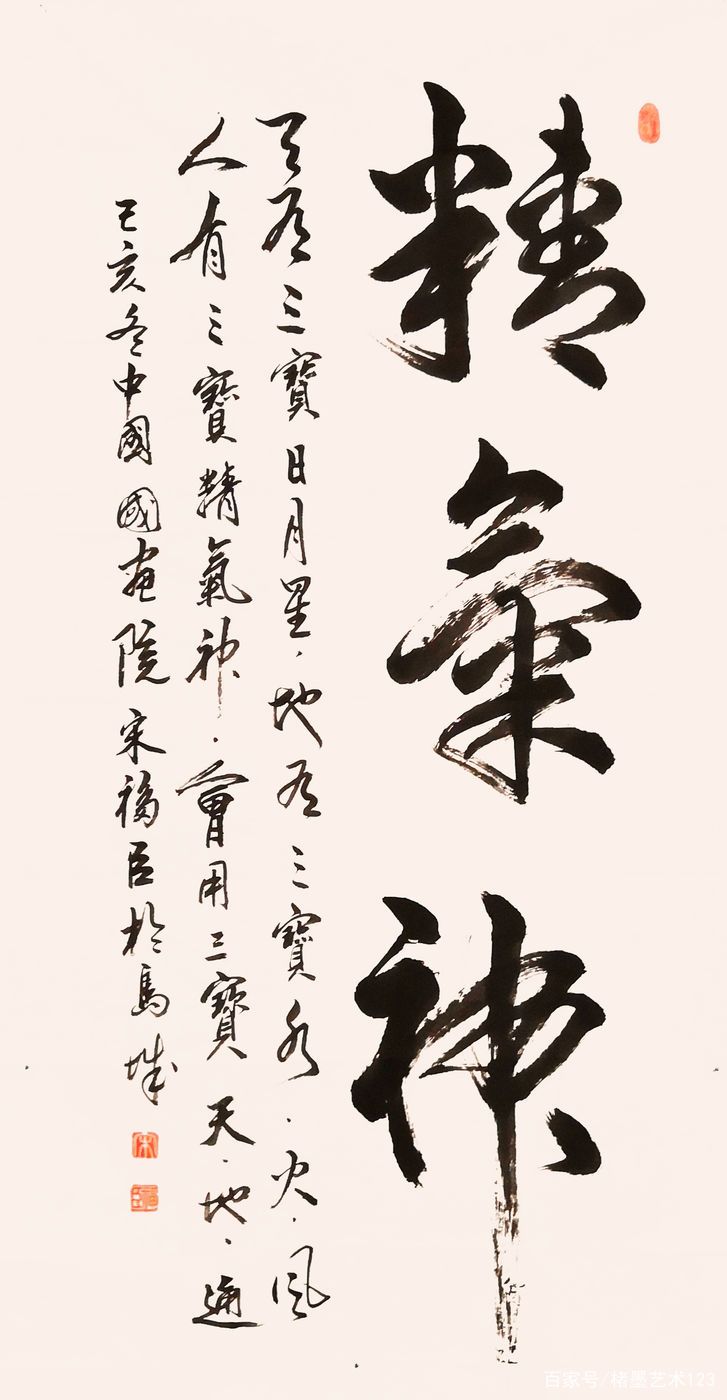 精氣神
天有三寶日月星·地有三寶水·火·風
人有三寶精氣神·會用三寶天·地·通
己亥冬中國國畫院宋福臣於馬城
百家号/楮墨艺术123